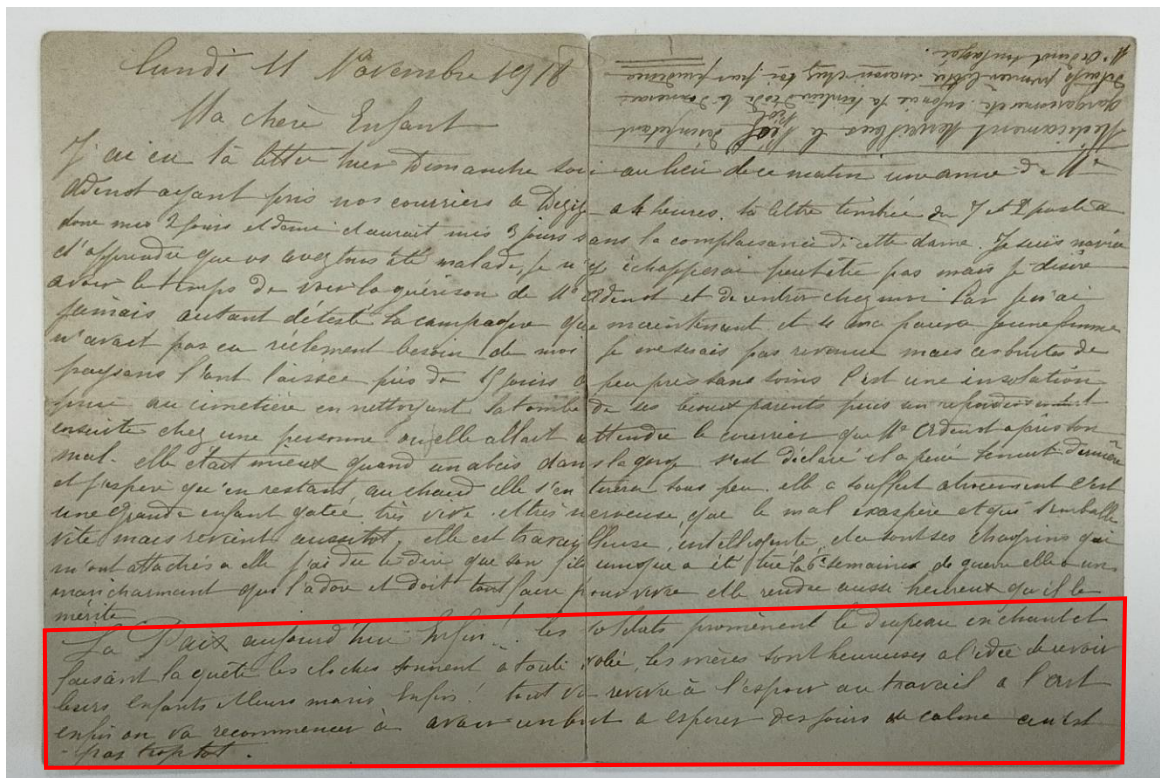 lundi 11 Novembre 1918
Ma chère Enfant
J'ai eu ta lettre hier Dimanche soir au lieu de ce matin une amie de Me
Adenot ayant pris nos courriers à Digoin a 4 heures. ta lettre timbrée du 7 et
donc mis 2 jours et demi et aurait mis 3 jours sans la complaisance de cette dame. Je suis navrée
d'apprendre que vs avez tous été malade, je n'y échapperai peut être pas mais je désire
avoir le temps de voir la guérison de Me Adenot et de rentrer chez moi Car je n'ai
jamais autant détesté la campagne que maintenant et si ma pauvre jeune femme
n'avait pas eu réellement besoin de moi je ne serais pas revenue mais ces brutes de
paysans l'ont laissée près de 15 jours à peu près sans soins C'est une insolation
prise au cimetière en nettoyant la tombe de ses beaux parents puis un refroidissement
ensuite chez une personne où elle allait attendre le courrier que Me Adenot a pris son
mal. elle était mieux quand un abcès dans la gorge s'est déclaré il a percé
et j'espère qu'en restant au chaud elle s'en tirera sous peu. elle a souffert atrocement c'est
une grande enfant gatée très vive et très nerveuse, que le mal exaspère et qui s'emballe
vite mais revient aussitot, elle est travailleuse, intelligente, et ce sont ses chagrins qui
m'ont attachés a elle j'ai dû te dire que son fils unique a été tué la 6e semaine de guerre elle a un
mari charmant qui l'adore et doit tout faire pour vivre elle rendre aussi heureux qu'il le
mérite
La Paix aujourd'hui Enfin! les soldats promènent le drapeau en chant et
faisant la quête les cloches sonnent à toute volée, les mères sont heureuses a l'idée de revoir
leurs enfants et leurs maris Enfin! tout va revivre à l'espoir au travail a l'art
enfin on va recommencer à avoir un but a espérer des jours de calme ce n'est
pas trop tot.
Médicament